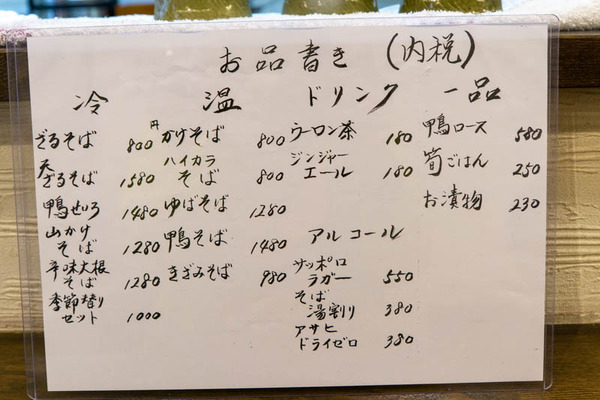 お品書き (内税)
冷
ざるそば 800円
天
ざるそば 1580
鴨せいろ 1480
山かけ
そば 1280
辛味大根
そば 1280
季節替り
セット 1000
温
かけそば 800
ハイカラ
そば 800
ゆばそば 1280
鴨そば 1480
きざみそば 980
ドリンク
ウーロン茶 180
ジンジャー
エール 180
アルコール
サッポロ
ラガー 550
そば
湯割り 380
アサヒ
ドライゼロ 380
一品
鴨ロース 580
筍ごはん 250
お漬物 230